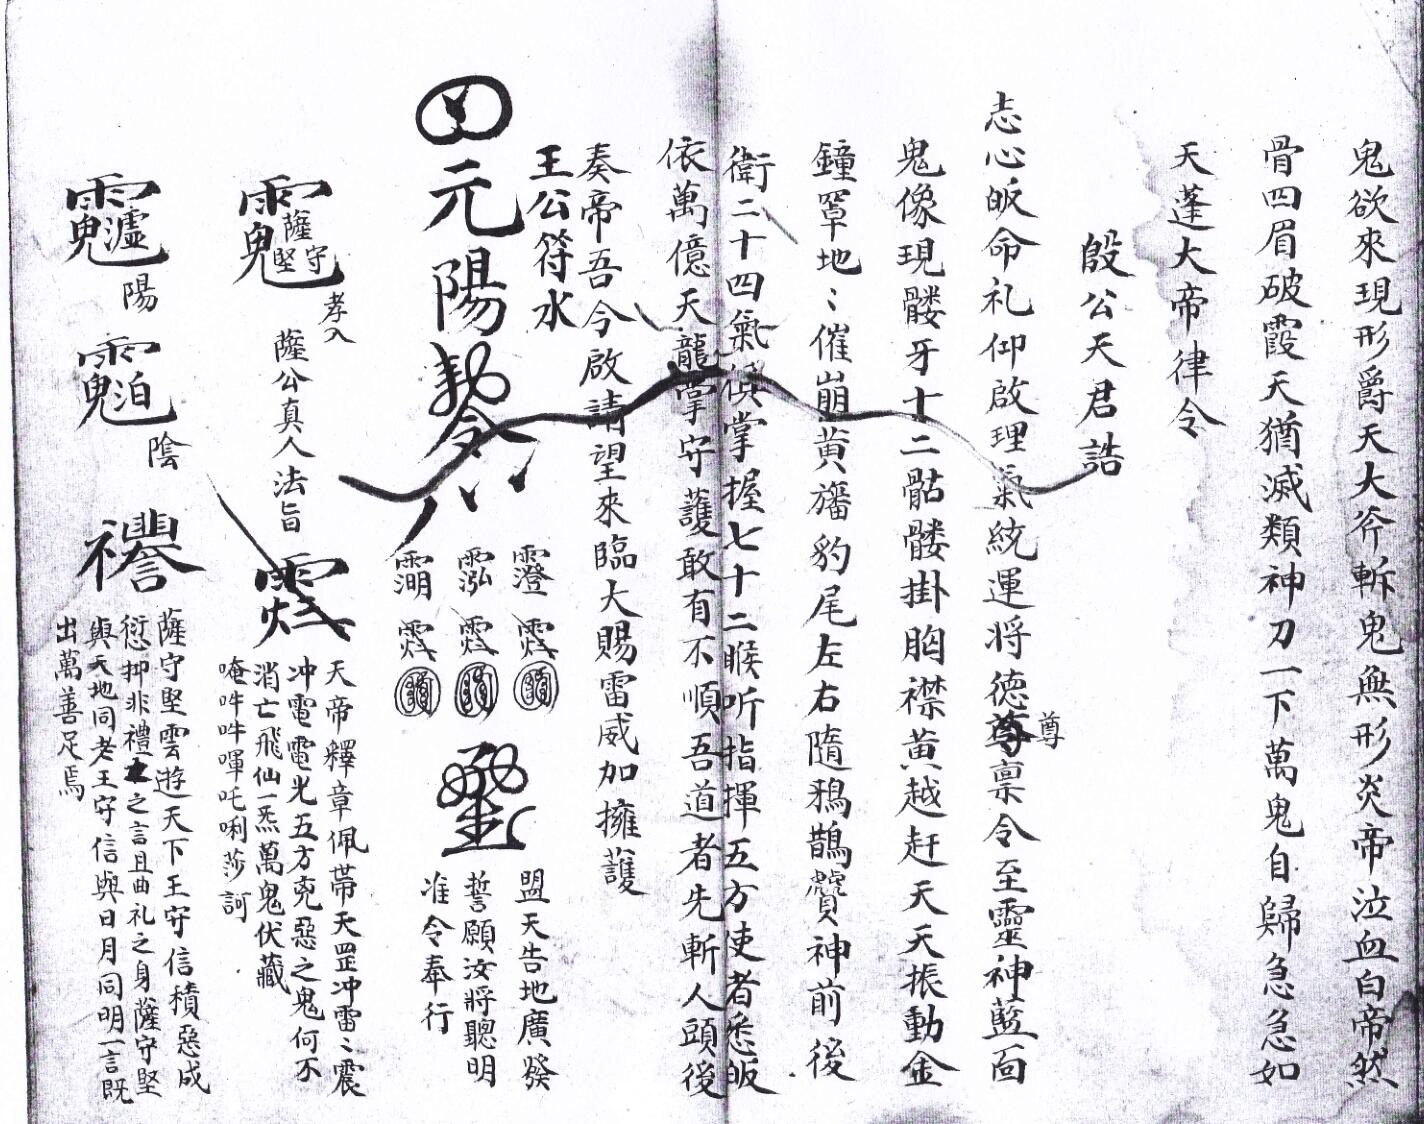 鬼欲來現形爵天大斧斬鬼無形炎帝泣血白帝然
骨四眉破霞天猶滅類神刀一下萬鬼自歸急急如
天蓬大帝律令
殷公天君誥
志心皈命礼仰啟理氣統運將德尊稟令至靈神藍面
尊
鬼像現髅牙十二骷髅掛胸襟黄越赶天天振動金
鐘罩地〻催崩黄旛豹尾左右隨鴉鵲神前後
衛二十四氣候掌握七十二睺听指揮五方吏者悉皈
依萬億天龍掌守護敢有不順吾道者先斬人頭後
奏帝吾令啟請望來臨大賜雷威加擁護
王公符水
元陽勅令
盟天告地廣發
誓願汝將聽明
准令奉行
薩守堅
孝入
薩公真人法旨
天帝釋章佩帯天罡冲雷〻震
冲電電光五方兇惡之鬼何不
消亡飛仙一炁萬鬼伏藏
唵吽吽㖇吒唎莎訶
陽
陰
薩守堅雲遊天下王守信積惡成
愆抑非禮之言且曲礼之身薩守堅
與天地同老王守信與日月同明一言既
出萬善足焉